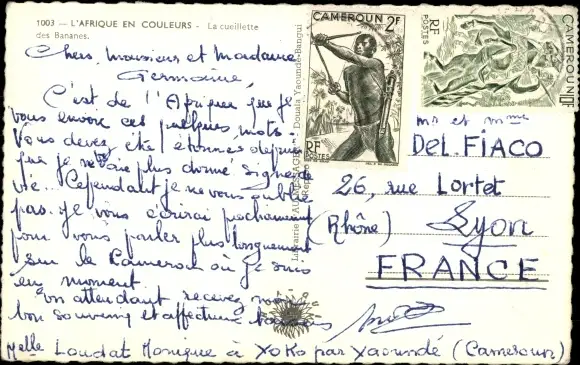 1003 — L'AFRIQUE EN COULEURS - La cueillette
des Bananes.
Chers Monsieur et Madame
Germaine,
C'est de l'Afrique que je
vous envoie ces quelques mots.
Vous devez être étonnés depuis
que je n'ai plus donné signe de
vie. Cependant je ne vous oublie
pas. Je vous écrirai prochainement
pour vous parler plus longuement
sur le Cameroun où je suis
en moment.
En attendant recevez mon
bon souvenir et affectueux baisers
Melle Loudat Monique à Yoko par Yaoundé (Cameroun)
Librairie
Douala Yaoundé-Bangui
CAMEROUN 2F
RF
POSTES
CAMEROUN
RF
POSTES
Mr et Mme
DEL.FIACO
26, rue Lortet
(Rhône) Lyon
FRANCE